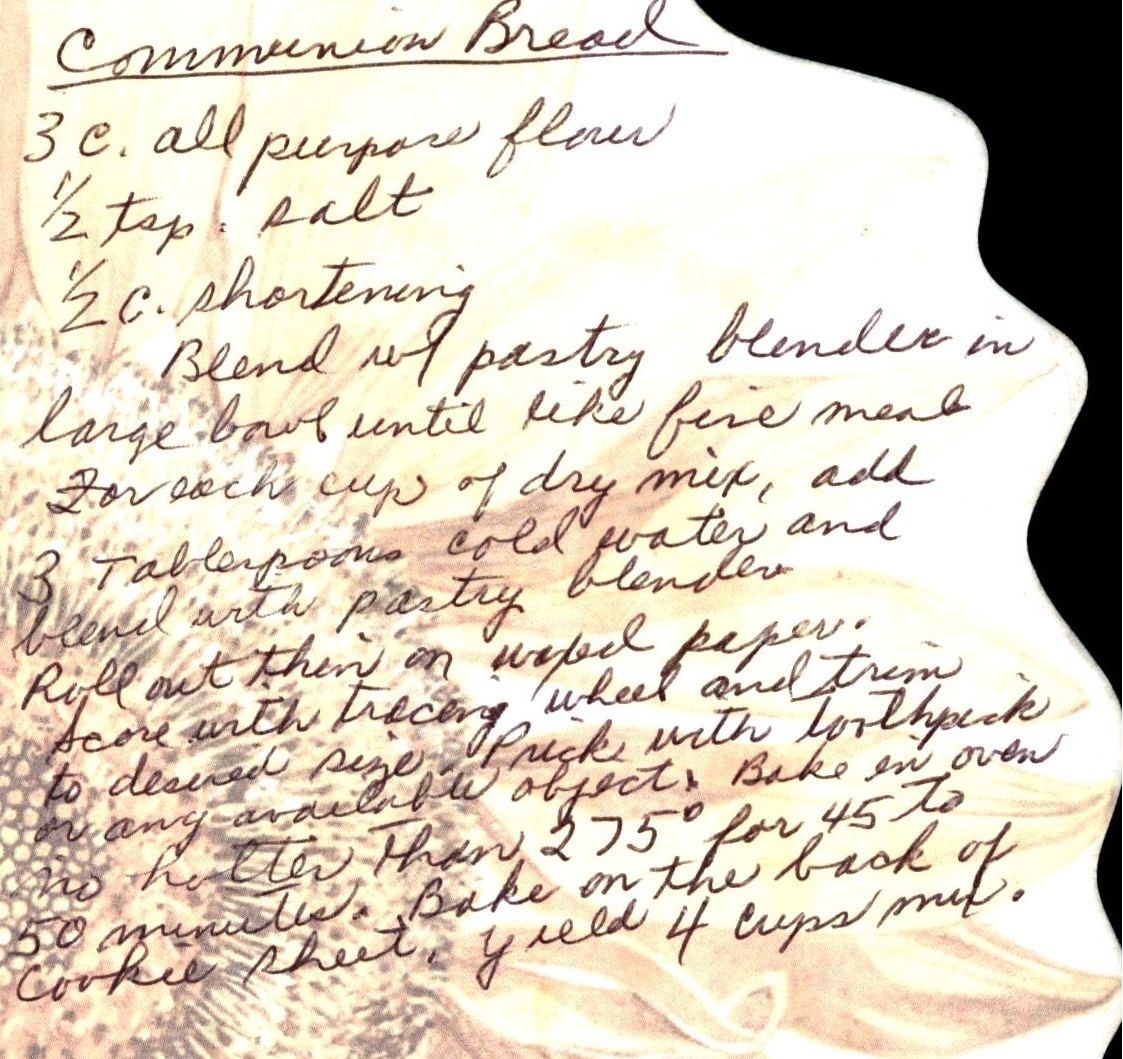 Communion Bread
3 c. all purpose flour
1/2 tsp. salt
1/2 c. shortening
Blend w/ pastry blender in
large bowl until like fine meal
For each cup of dry mix, add
3 Tablespoons cold water and
blend with pastry blender
Roll out thin on waxed paper.
Score with tracing wheel and trim
to desired size. Prick with toothpick
or any available object. Bake in oven
no hotter than 275° for 45 to
50 minutes. Bake on the back of
cookie sheet. yield 4 cups mix.